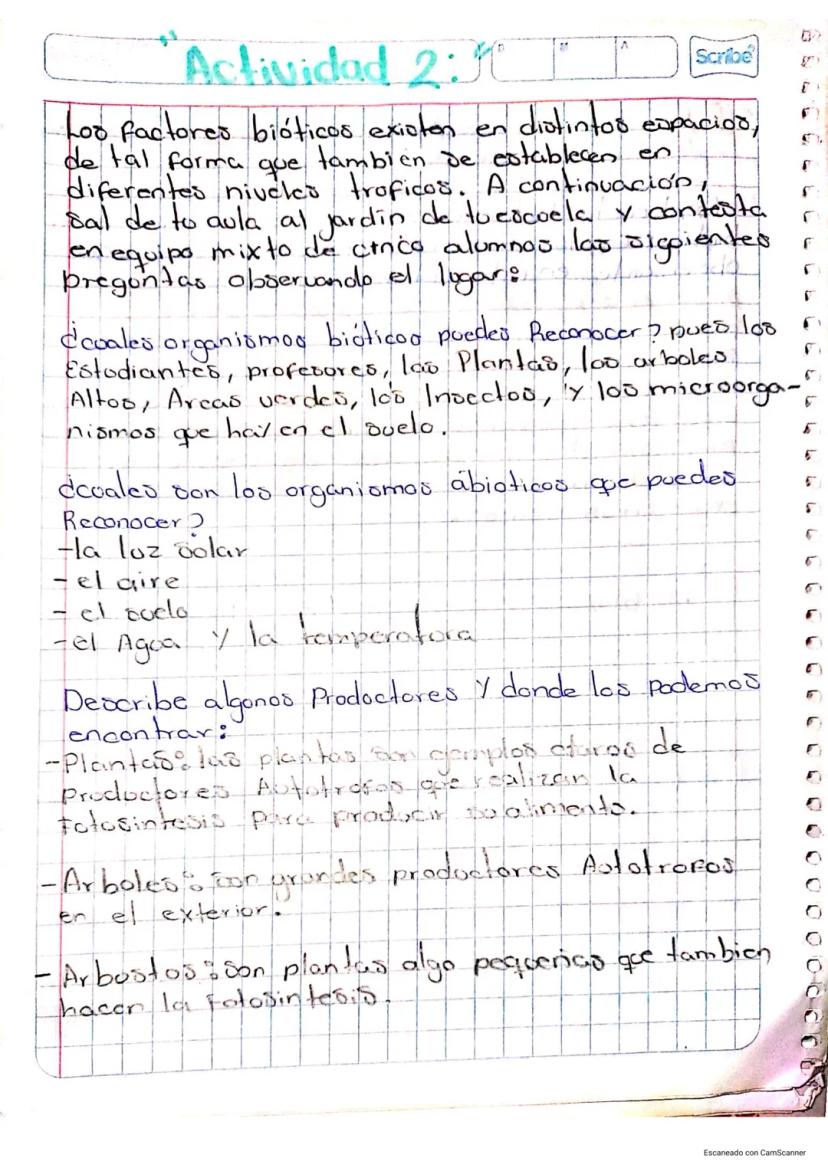 "Actividad 2:"
D M A
Scribe
Los factores bióticos existen en distintos espacios,
de tal forma que tambien se establecen en
diferentes niveles troficos. A continuación,
sal de tu aula al jardin de tu escuela y contesta
en equipo mixto de cinco alumnos las siguientes
preguntas observando el lugar:
¿cuales organismos bióticos puedes Reconocer? pues los
Estudiantes, profesores, las Plantas, los arboles
Altos, Areas verdes, los Insectos, y los microorga-
nismos que hay en el suelo.
¿cuales son los organismos abioticos que puedes
Reconocer?
-la luz solar
- el aire
- el suelo
-el Agua y la temperatura
Describe algunos Productores y donde los Podemos
encontrar:
-Plantas: las plantas son ejemplos claros de
Productores Autotrofos que realizan la
Fotosintesis para producir su alimento.
-Arboles: son grandes productores Autotrofos
en el exterior.
- Arbustos: Son plantas algo pequeñas que tambien
hacen la Fotosintesis.
Escaneado con CamScanner